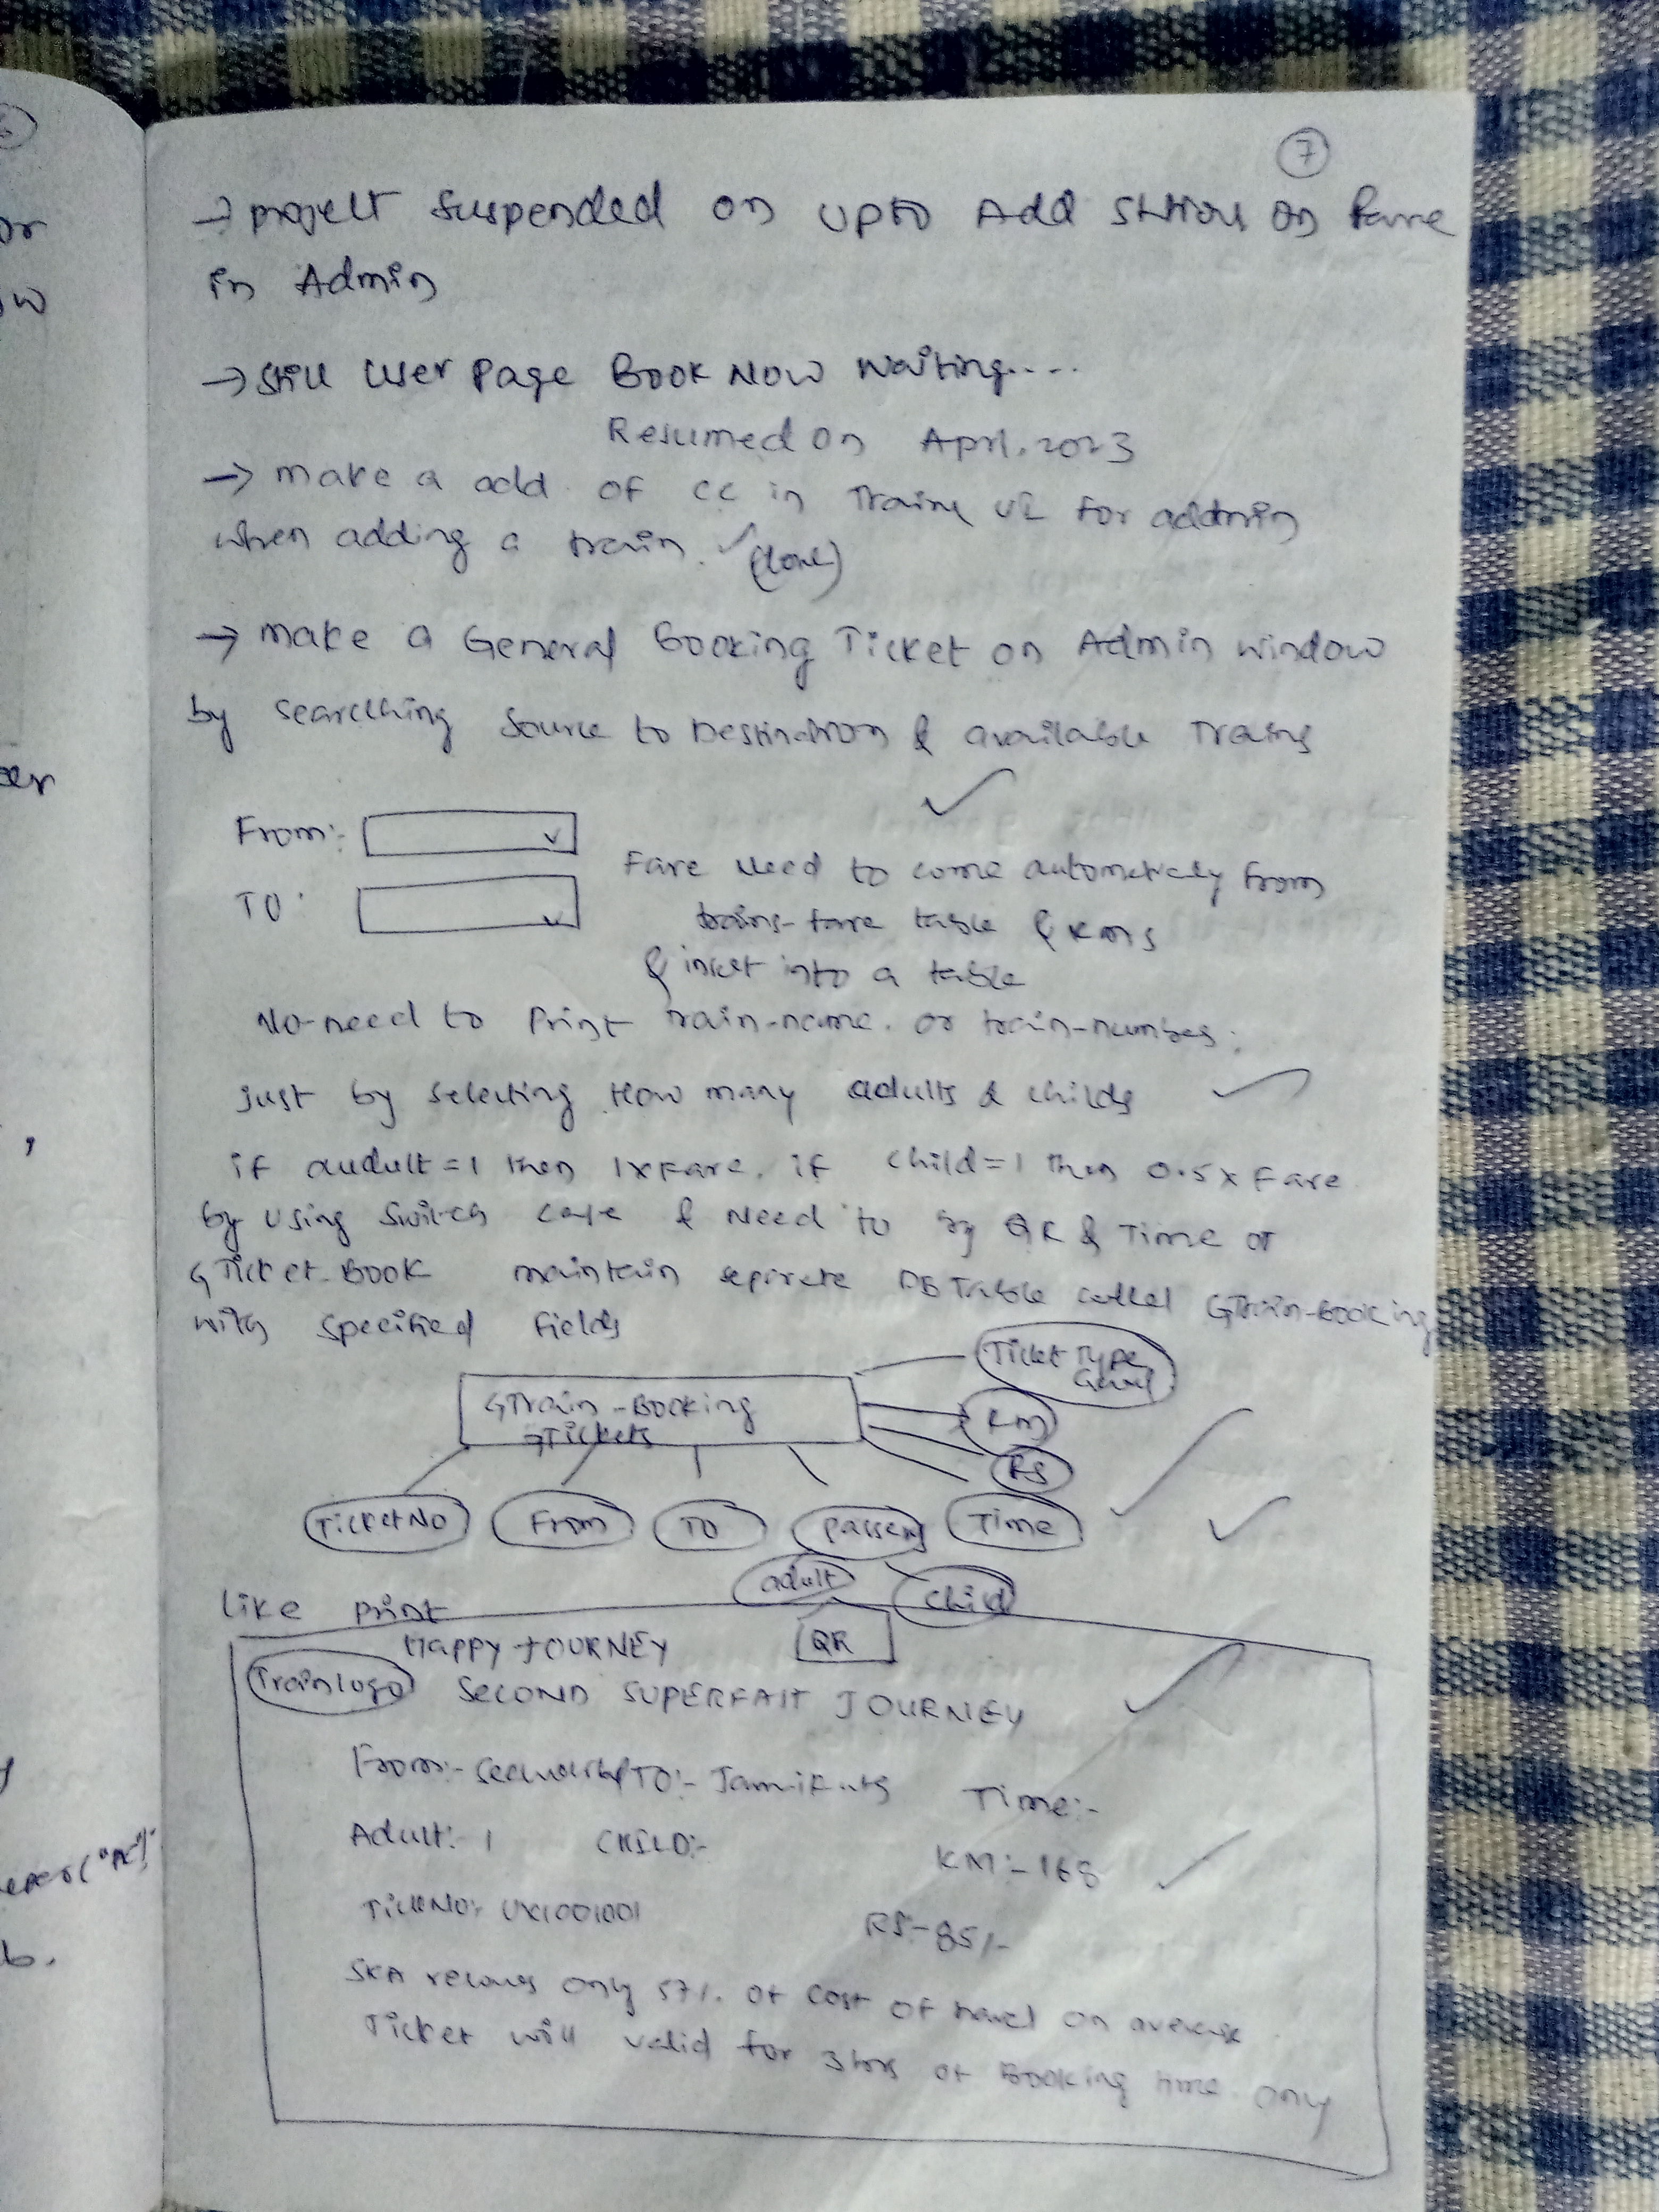 7
→ project suspended on upto Add stations on Fare
in Admin
→ still User Page Book Now Waiting....
Resumed on April. 2023
→ make a add of CC in Train UI for addmin
when adding a train. ✓ (done)
→ make a General Booking Ticket on Admin window
by searching Source to Destination & available Trains
✓
From:-
TO:
Fare need to come automatically from
trains-fare table & kms
& insert into a table
No-need to print train-name. or train-number.
just by selecting How many adults & childs ✓
if audult=1 then 1xFare. if child=1 then 0.5x Fare.
by using switch case & Need to by QR & Time of
GTicket-Book maintain seprete DB Table called GTrain-Booking
with specified fields
Ticket Type
GTrain-Booking
GTickets
KM
RS
TicketNo From TO Time
adult child
like print
HAPPY JOURNEY QR
Trainlogo SECOND SUPERFAST JOURNEY
From:- TO:- Time:-
Adult:- 1 CHILD:- KM:- 168
UX1001001 RS:-85/-
only 57%. of cost of travel on average.
Ticket will valid for 3hrs of Booking time only